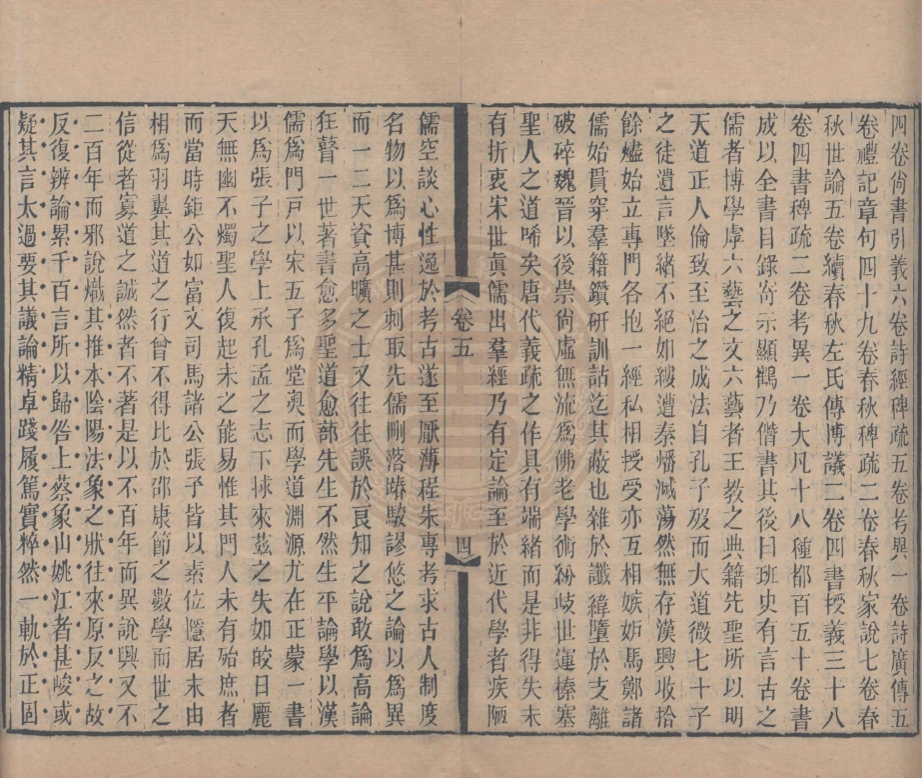 四卷尙書引義六卷詩經稗疏五卷考異一卷詩廣傳五
卷禮記章句四十九卷春秋稗疏二卷春秋家說七卷春
秋世論五卷續春秋左氏傳博議二卷四書授義三十八
卷四書稗疏二卷考異一卷大凡十八種都百五十卷書
成以全書目錄寄示顯鶴乃僭書其後曰班史有言古之
儒者博學虖六藝之文六藝者王教之典籍先聖所以明
天道正人倫致至治之成法自孔子歿而大道微七十子
之徒遺言墜緒不絕如縷遭秦燔滅蕩然無存漢興收拾
餘燼始立專門各抱一經私相授受亦互相嫉妬馬鄭諸
儒始貫穿羣籍鑽研訓詁迄其蔽也雜於讖緯墮於支離
破碎魏晉以後崇尙虛無流爲佛老學術紛歧世運榛塞
聖人之道唏矣唐代義疏之作具有端緒而是非得失未
有折衷宋世眞儒出羣經乃有定論至於近代學者疾陋
卷五
四
儒空談心性逸於考古遂至厭薄程朱專考求古人制度
名物以爲博甚則刺取先儒刪落踳駮謬悠之論以爲異
而一二天資高曠之士又往往誤於良知之說敢爲高論
狂瞽一世著書愈多聖道愈蔀先生不然生平論學以漢
儒爲門戸以宋五子爲堂奧而學道淵源尤在正蒙一書
以爲張子之學上承孔孟之志下捄來茲之失如皎日麗
天無幽不燭聖人復起未之能易惟其門人未有殆庶者
而當時鉅公如富文司馬諸公張子皆以素位隱居末由
相爲羽翼其道之行曾不得比於邵康節之數學而世之
信從者寡道之誠然者不著是以不百年而異說興又不
二百年而邪說熾其推本陰陽法象之狀往來原反之故
反復辨論累千百言所以歸咎上蔡象山姚江者甚峻或
疑其言太過要其議論精卓踐履篤實粹然一軌於正固